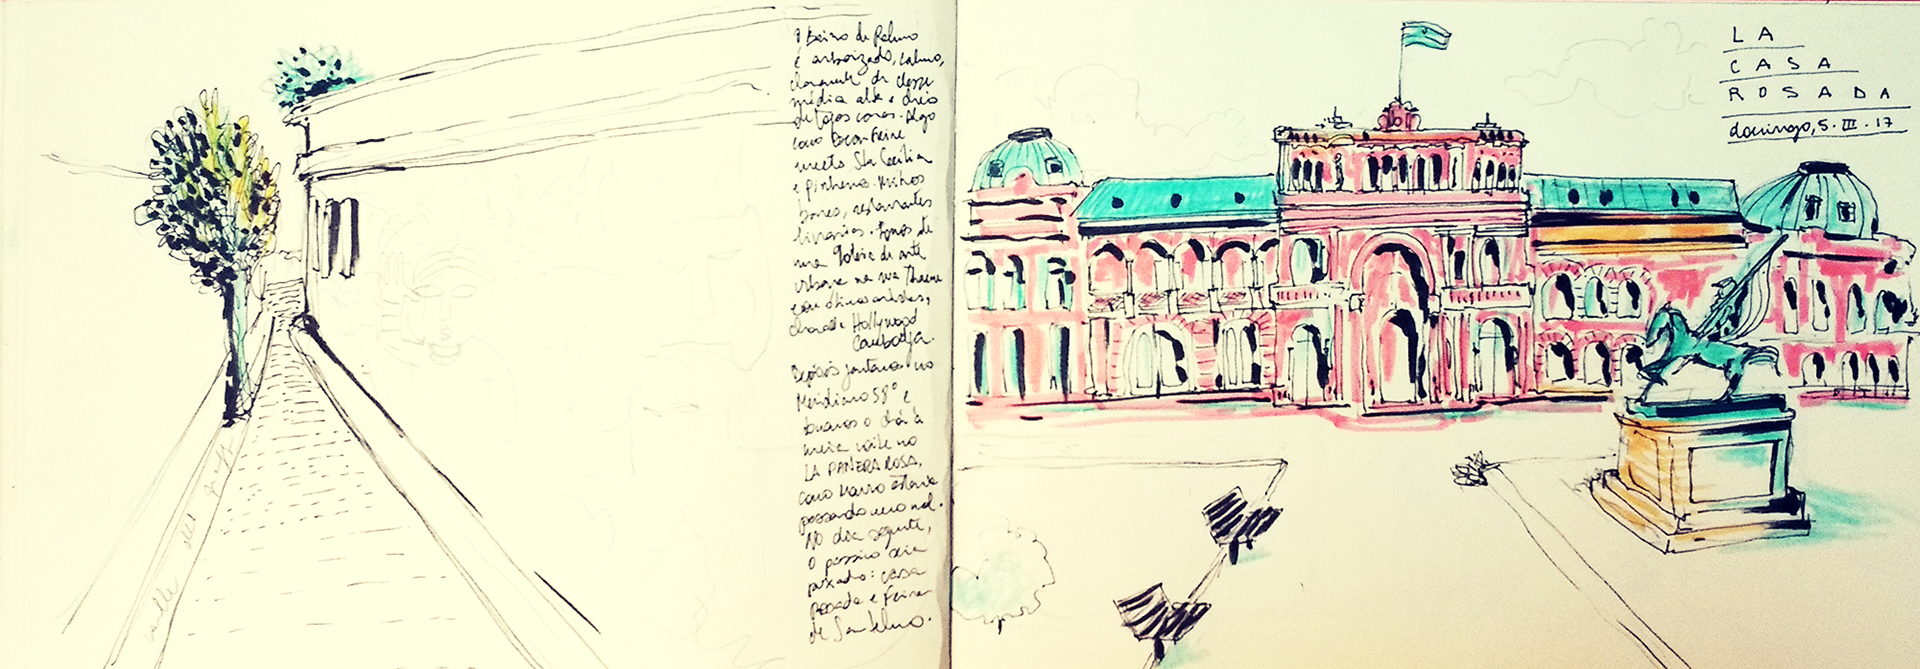 O Bairro de Palermo
é arborizado, calmo,
de classe
média alta e cheio
de lojas caras. Algo
como Benfeire
meets Sta Cecília
e Pinheiros. Muitos
bares, restaurantes
livrarias. Fomos de
uma galeria de arte
urbana na rua Thame
com ótimos artistas,
chamada Hollywood
Cambodja.
Depois jantamos no
Meridiano 58º e
o chá à
meia noite no
LA PANERA ROSA,
como
passando mal.
No dia seguinte,
o passeio seria
puxado: casa
Rosada e Feira
de San Telmo.
calle del
LA
CASA
ROSADA
domingo, 5. III. 17